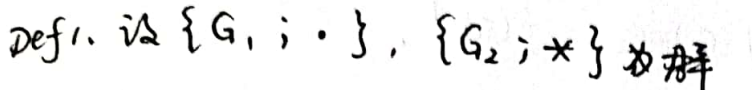 Def1. 设 {G₁ ; ·} , {G₂ ; *} 为群